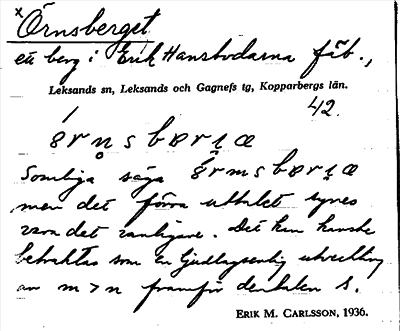 x Örnsberget
ett berg i Erik Hansbodarna fäb.,
Leksands sn, Leksands och Gagnefs tg, Kopparbergs län.
42.
ö́rn̥sbærı̨æ
Somliga säga ö́rmsbærı̨æ
men det förra uttalet synes
vara det vanligare. Det kan kanske
betraktas som en ljudlagsenlig utveckling
av m > n framför dentalen s.
ERIK M. CARLSSON, 1936.